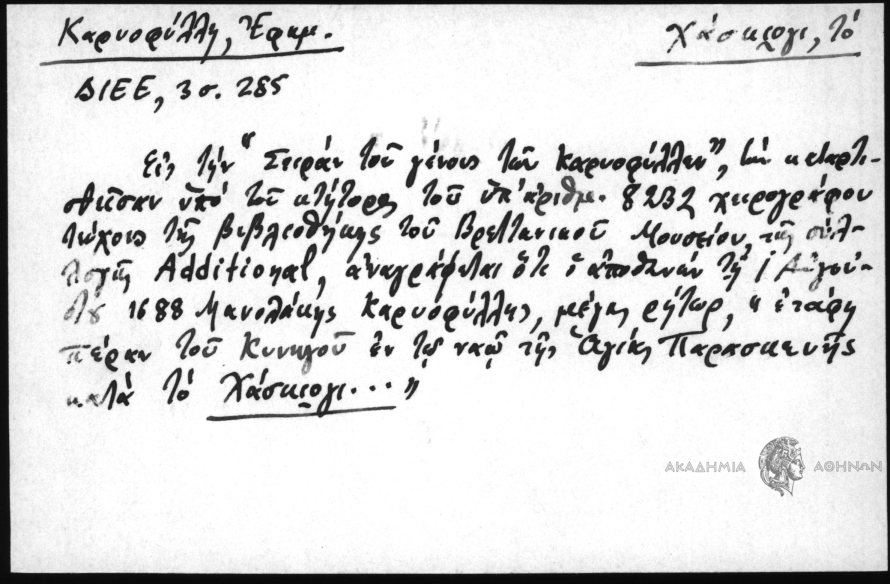 Καρυοφύλλη, Ἐφημ. Χάσκιογι, τὸ
ΔΙΕΕ, 3 σ. 285
Εἰς τὴν "Σειρὰν τοῦ γένους τῶν Καρυοφύλλων", τὴν καταρτι-
σθεῖσαν ὑπὸ τοῦ κτήτορος τοῦ ὑπ' ἀριθμ. 8232 χειρογράφου
τεύχους τῆς βιβλιοθήκης τοῦ Βρεττανικοῦ Μουσείου, τῆς συλ-
λογῆς Additional, ἀναγράφεται ὅτι ὁ ἀποθανὼν τῇ 1 Αὐγού-
στου 1688 Μανολάκης Καρυόφύλλης, μέγας ρήτωρ, "ἐτάφη
πέραν τοῦ Κυνηγοῦ ἐν τῷ ναῷ τῆς Ἁγίας Παρασκευῆς
κατὰ τὸ Χάσκιογι..."
ΑΚΑΔΗΜΙΑ ΑΘΗΝΩΝ